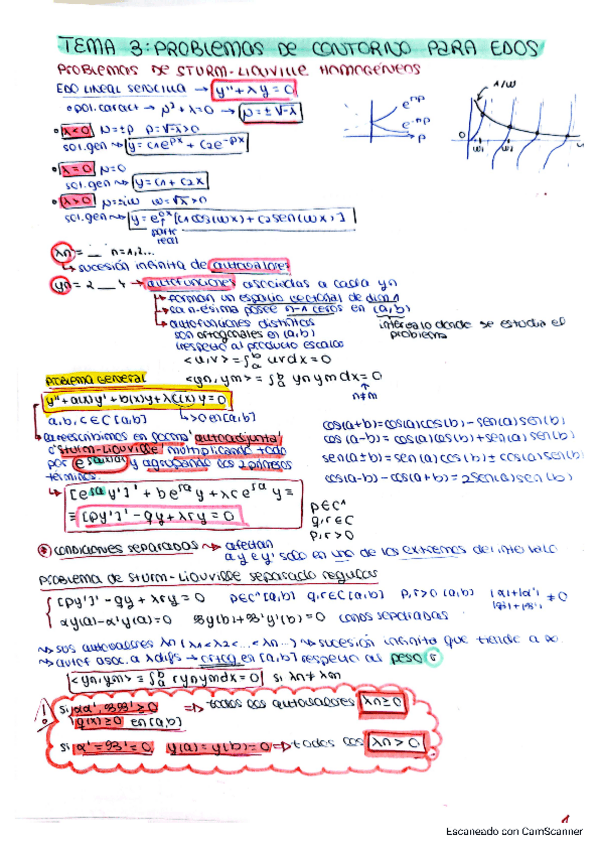 TEMA 3: PROBLEMAS DE CONTORNO PARA EDOS
PROBLEMAS DE STURM-LIOUVILLE HOMOGÉNEOS
EDO LINEAL SENCILLA → y''+λy=0
pol. caract → μ²+λ=0 → μ=±√-λ
λ<0 μ=±p p=√-λ>0
sol.gen → y=c1e^px + c2e^-px
λ=0 μ=0
sol.gen → y=c1+c2x
λ>0 μ=±iw w=√λ>0
sol.gen → y=e^0x [c1cos(wx)+c2sen(wx)]
parte
real
e^p
e^-p
p
1/w
0
w1
w2
λn = __ n=1,2...
sucesión infinita de autovalores
autofunciones asociadas a cada yn
forman un espacio vectorial de dim 1
la n-ésima posee n-1 ceros en (a,b)
autofunciones distintas
son ortogonales en (a,b)
respecto al producto escalar
intervalo donde se estudia el
problema
<u,v> = ∫ab uvdx=0
<yn,ym> = ∫ab ynymdx=0
n≠m
PROBLEMA GENERAL
y''+a(x)y'+b(x)y+λc(x)y=0
a,b,c∈C[a,b]
>0 en [a,b]
La reescribimos en forma autoadjunta
o Sturm-Liouville multiplicando todo
por e^∫a(x)dx y agrupando los 2 primeros
términos.
[e^∫a y']' + be^∫a y + λce^∫a y ≡
≡ [py']' - qy + λry = 0
p∈C¹
q,r∈C
p,r>0
cos(a+b)=cos(a)cos(b)-sen(a)sen(b)
cos(a-b)=cos(a)cos(b)+sen(a)sen(b)
sen(a±b)=sen(a)cos(b)±cos(a)sen(b)
cos(a-b)-cos(a+b)=2sen(a)sen(b)
CONDICIONES SEPARADAS → afectan
a y e y' sólo en uno de los extremos del intervalo
PROBLEMA DE STURM-LIOUVILLE SEPARADO REGULAR
[py']'-qy+λry=0 p∈C¹[a,b] q,r∈C[a,b] p,r>0 [a,b] |α|+|α'| |β|+|β'| ≠0
αy(a)-α'y'(a)=0 βy(b)+β'y'(b)=0 conds separadas
sus autovalores λn (λ1<λ2<...<λn...) → sucesión infinita que tiende a ∞.
autof asoc. a λ difs → ortog en [a,b] respecto al peso r
<yn,ym> = ∫ab rynymdx=0 si λn≠λm
si αα',ββ'≥0 ⇒ todos los autovalores λn≥0
q(x)≥0 en [a,b]
si α'=β'=0 y(a)=y(b)=0 ⇒ todos los λn>0
1
Escaneado con CamScanner